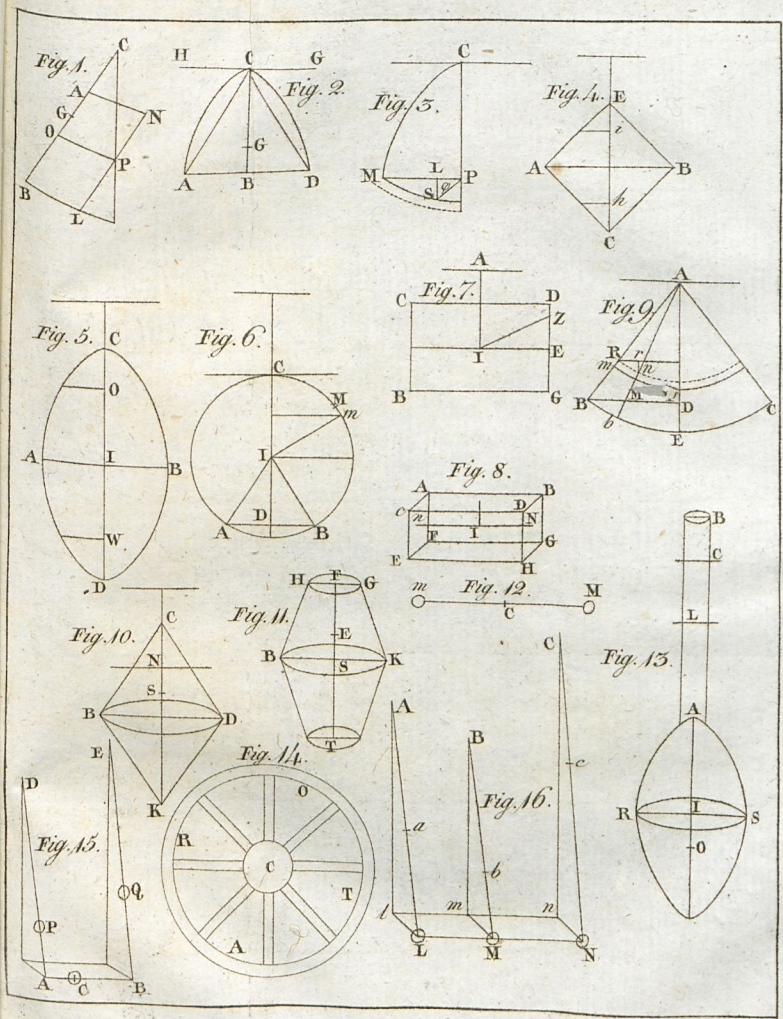 Fig. 1.
C
A
G
N
O
P
B
L
Fig. 2.
H C G
G
A B D
Fig. 3.
C
M L P
S φ
Fig. 4.
E
i
A B
h
C
Fig. 5.
C
O
A I B
W
D
Fig. 6.
C
M
m
I
D
A B
Fig. 7.
A
C D
Z
I E
B G
Fig. 9.
A
R r
m n
B M D C
b
E
Fig. 8.
A B
c D
n I N
F G
E H
Fig. 12.
m M
C
Fig. 10.
C
N
S
B D
K
Fig. 11.
H F G
E
B S K
T
Fig. 13.
B
C
L
A
R I S
O
Fig. 14.
O
R
C
T
A
Fig. 15.
E
D
Q
P
A C B
Fig. 16.
C
A
B
c
a
b
l m n
L M N